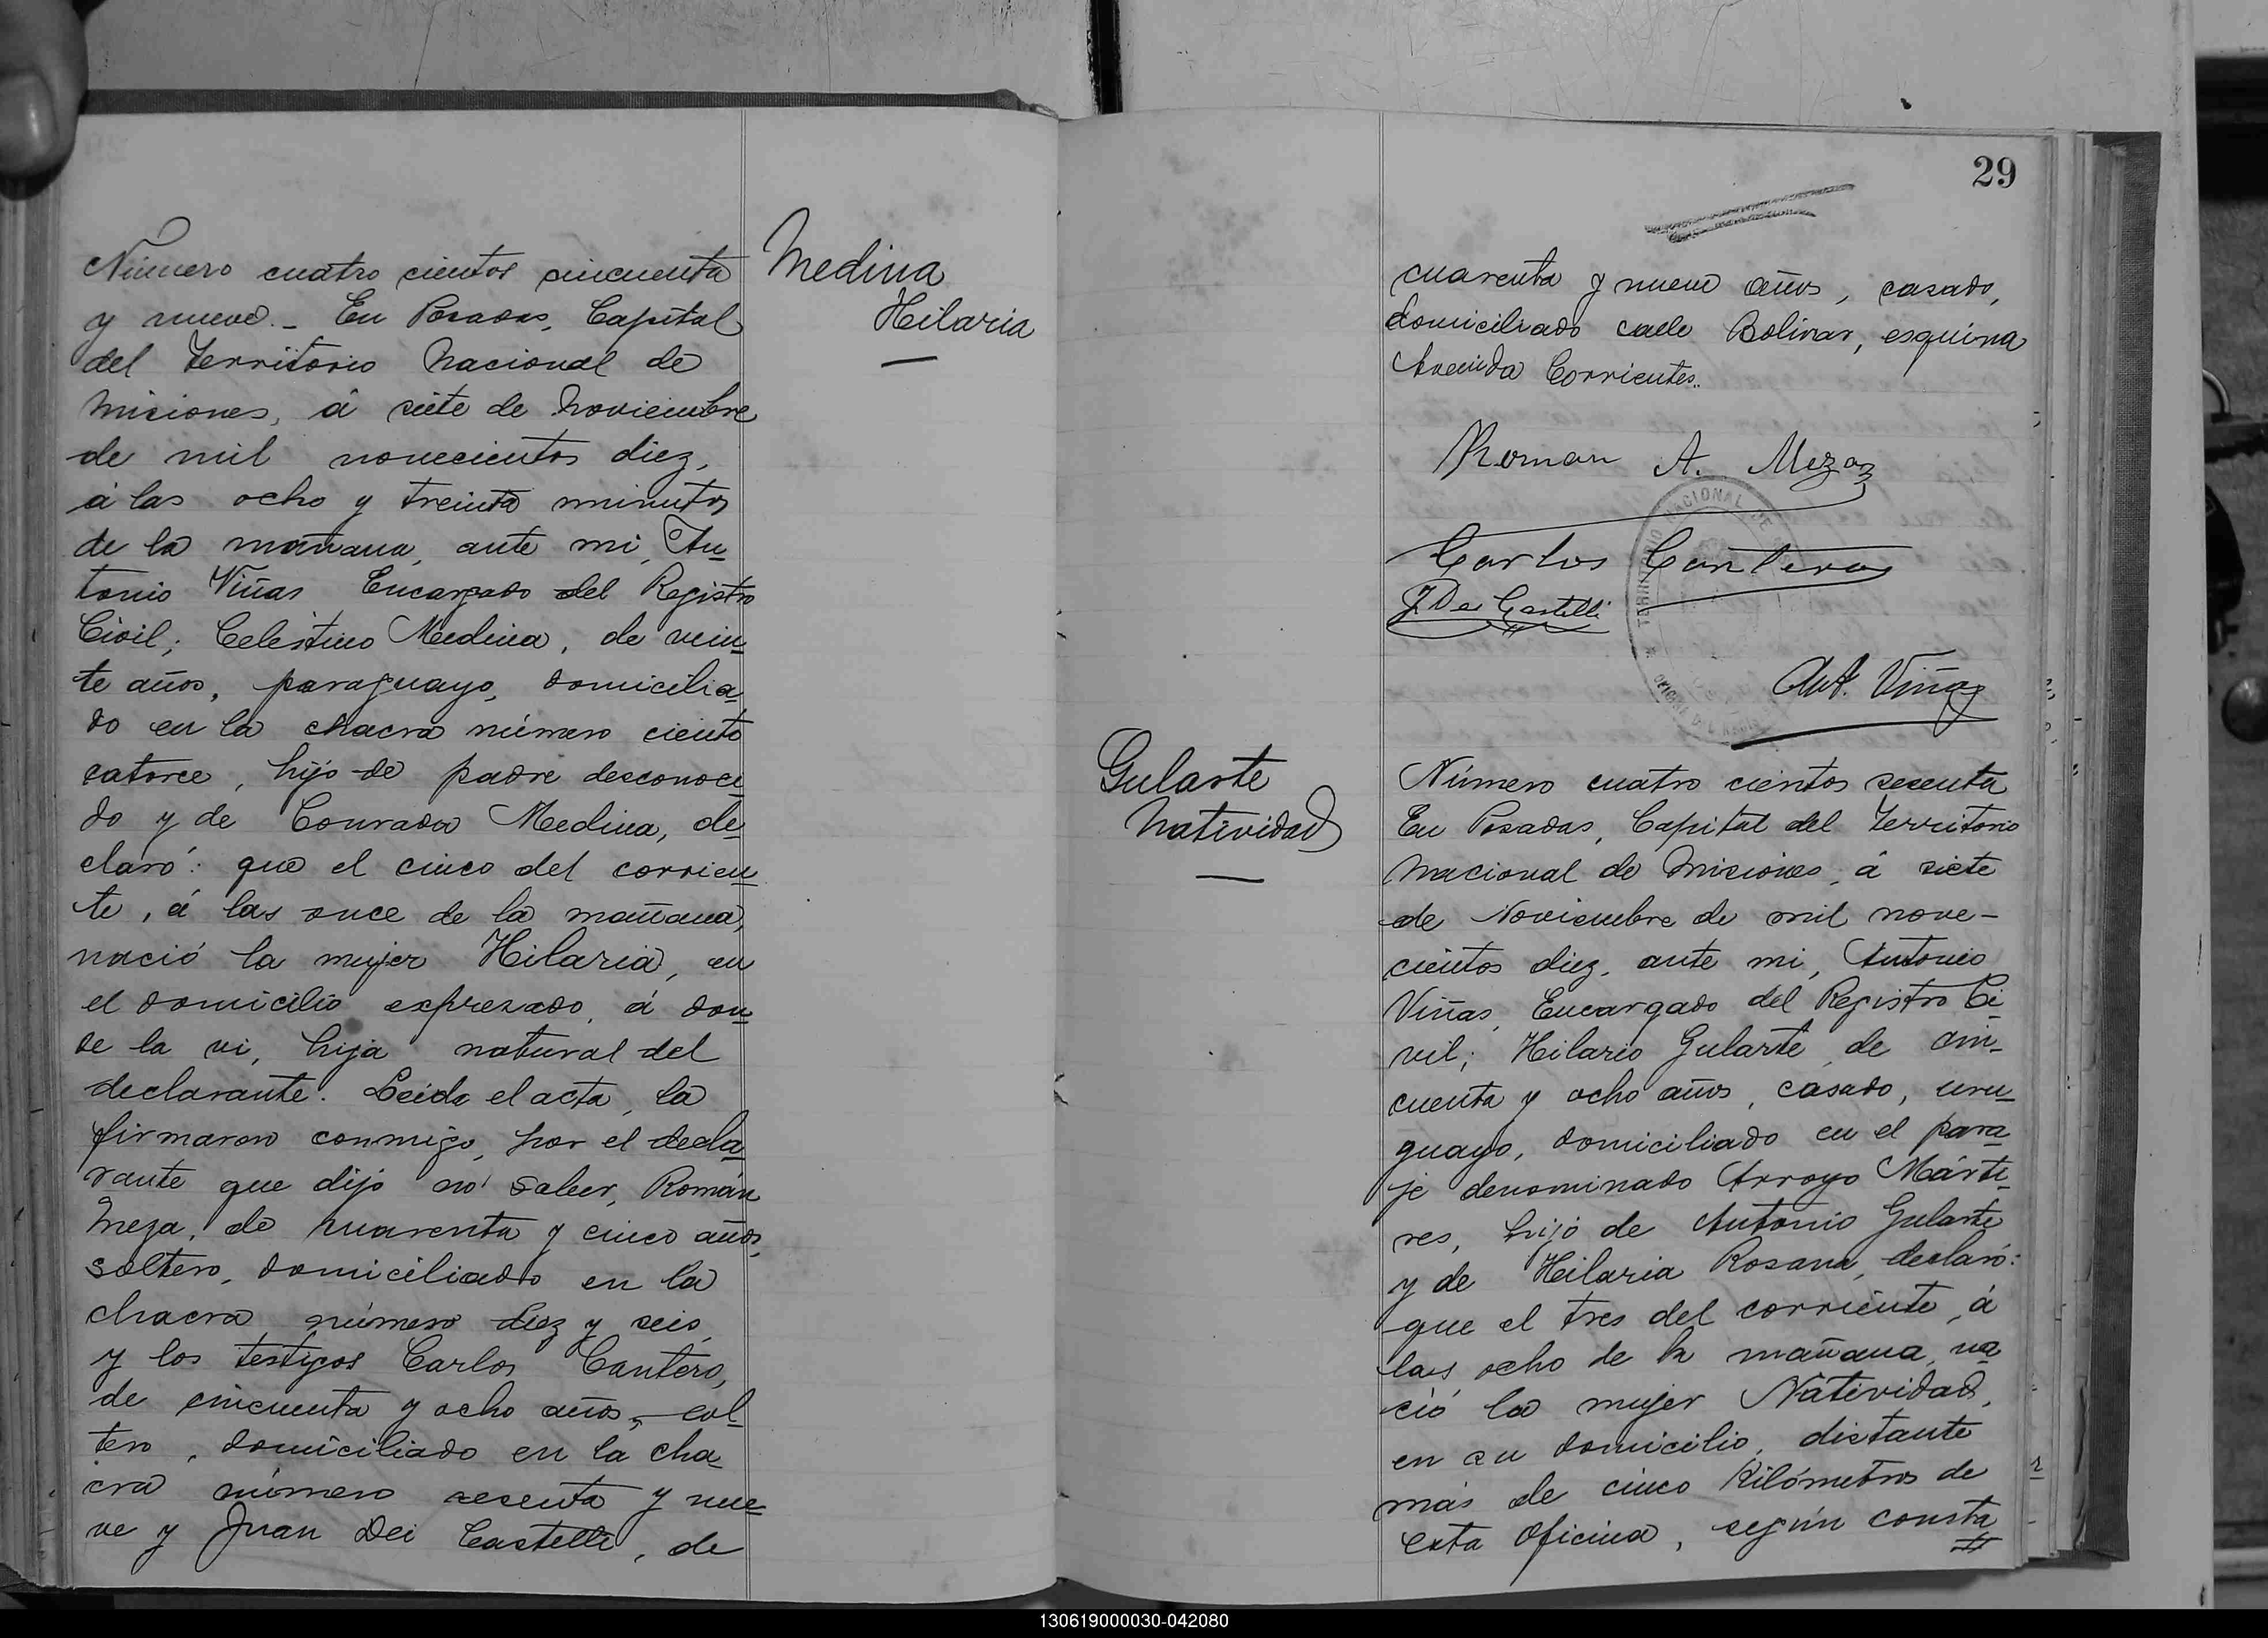 Número cuatro cientos cincuenta
y nueve. _ En Posadas, Capital
del Territorio Nacional de
Misiones, á siete de Noviembre
de mil novecientos diez,
á las ocho y treinta minutos
de la mañana, ante mi, An
tonio Viñas Encargado del Registro
Civil; Celestino Medina, de vein
te años, paraguayo, domicilia
do en la chacra número ciento
catorce, hijo de padre desconoci
do y de Conrada Medina, de
claró: que el cinco del corrien
te, á las once de la mañana,
nació la mujer Hilaria, en
el domicilio expresado, á don
de la vi, hija natural del
declarante. Leida el acta, la
firmaron conmigo, por el decla
rante que dijo no saber, Román
Meza, de cuarenta y cinco años,
soltero, domiciliado en la
chacra número diez y seis,
y los testigos Carlos Cantero,
de cincuenta y ocho años, sol
tero, domiciliado en la cha
cra número sesenta y nue
ve y Juan Dei Castelli, de
Medina
Hilaria
29
cuarenta y nueve años, casado,
domiciliado calle Bolivar, esquina
Avenida Corrientes.
Roman A. Meza
Carlos Cantero
J. Dei Castelli
TERRITORIO NACIONAL DE
OFICINA DEL REGIS
Ant. Viñas
Gularte
Natividad
Número cuatro cientos sesenta
En Posadas, Capital del Territorio
Nacional de Misiones, á siete
de Noviembre de mil nove-
cientos diez, ante mi, Antonio
Viñas, Encargado del Registro Ci
vil; Hilario Gularte, de cin
cuenta y ocho años, casado, uru
guayo, domiciliado en el para
je denominado Arroyo Márti
res, hijo de Antonio Gularte
y de Hilaria Rosana, declaró:
que el tres del corriente, á
las ocho de la mañana, na
ció la mujer Natividad,
en su domicilio, distante
más de cinco Kilómetros de
esta Oficina, según consta
130619000030-042080